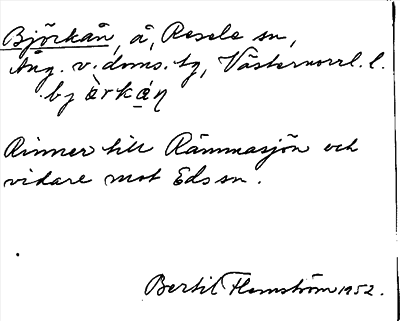 Björkån, å, Resele sn,
Ång. v. doms. tg, Västernorrl. l.
bjä̀rkán
Rinner till Rämmasjön och
vidare mot Eds sn.
Bertil Flemström 1952.